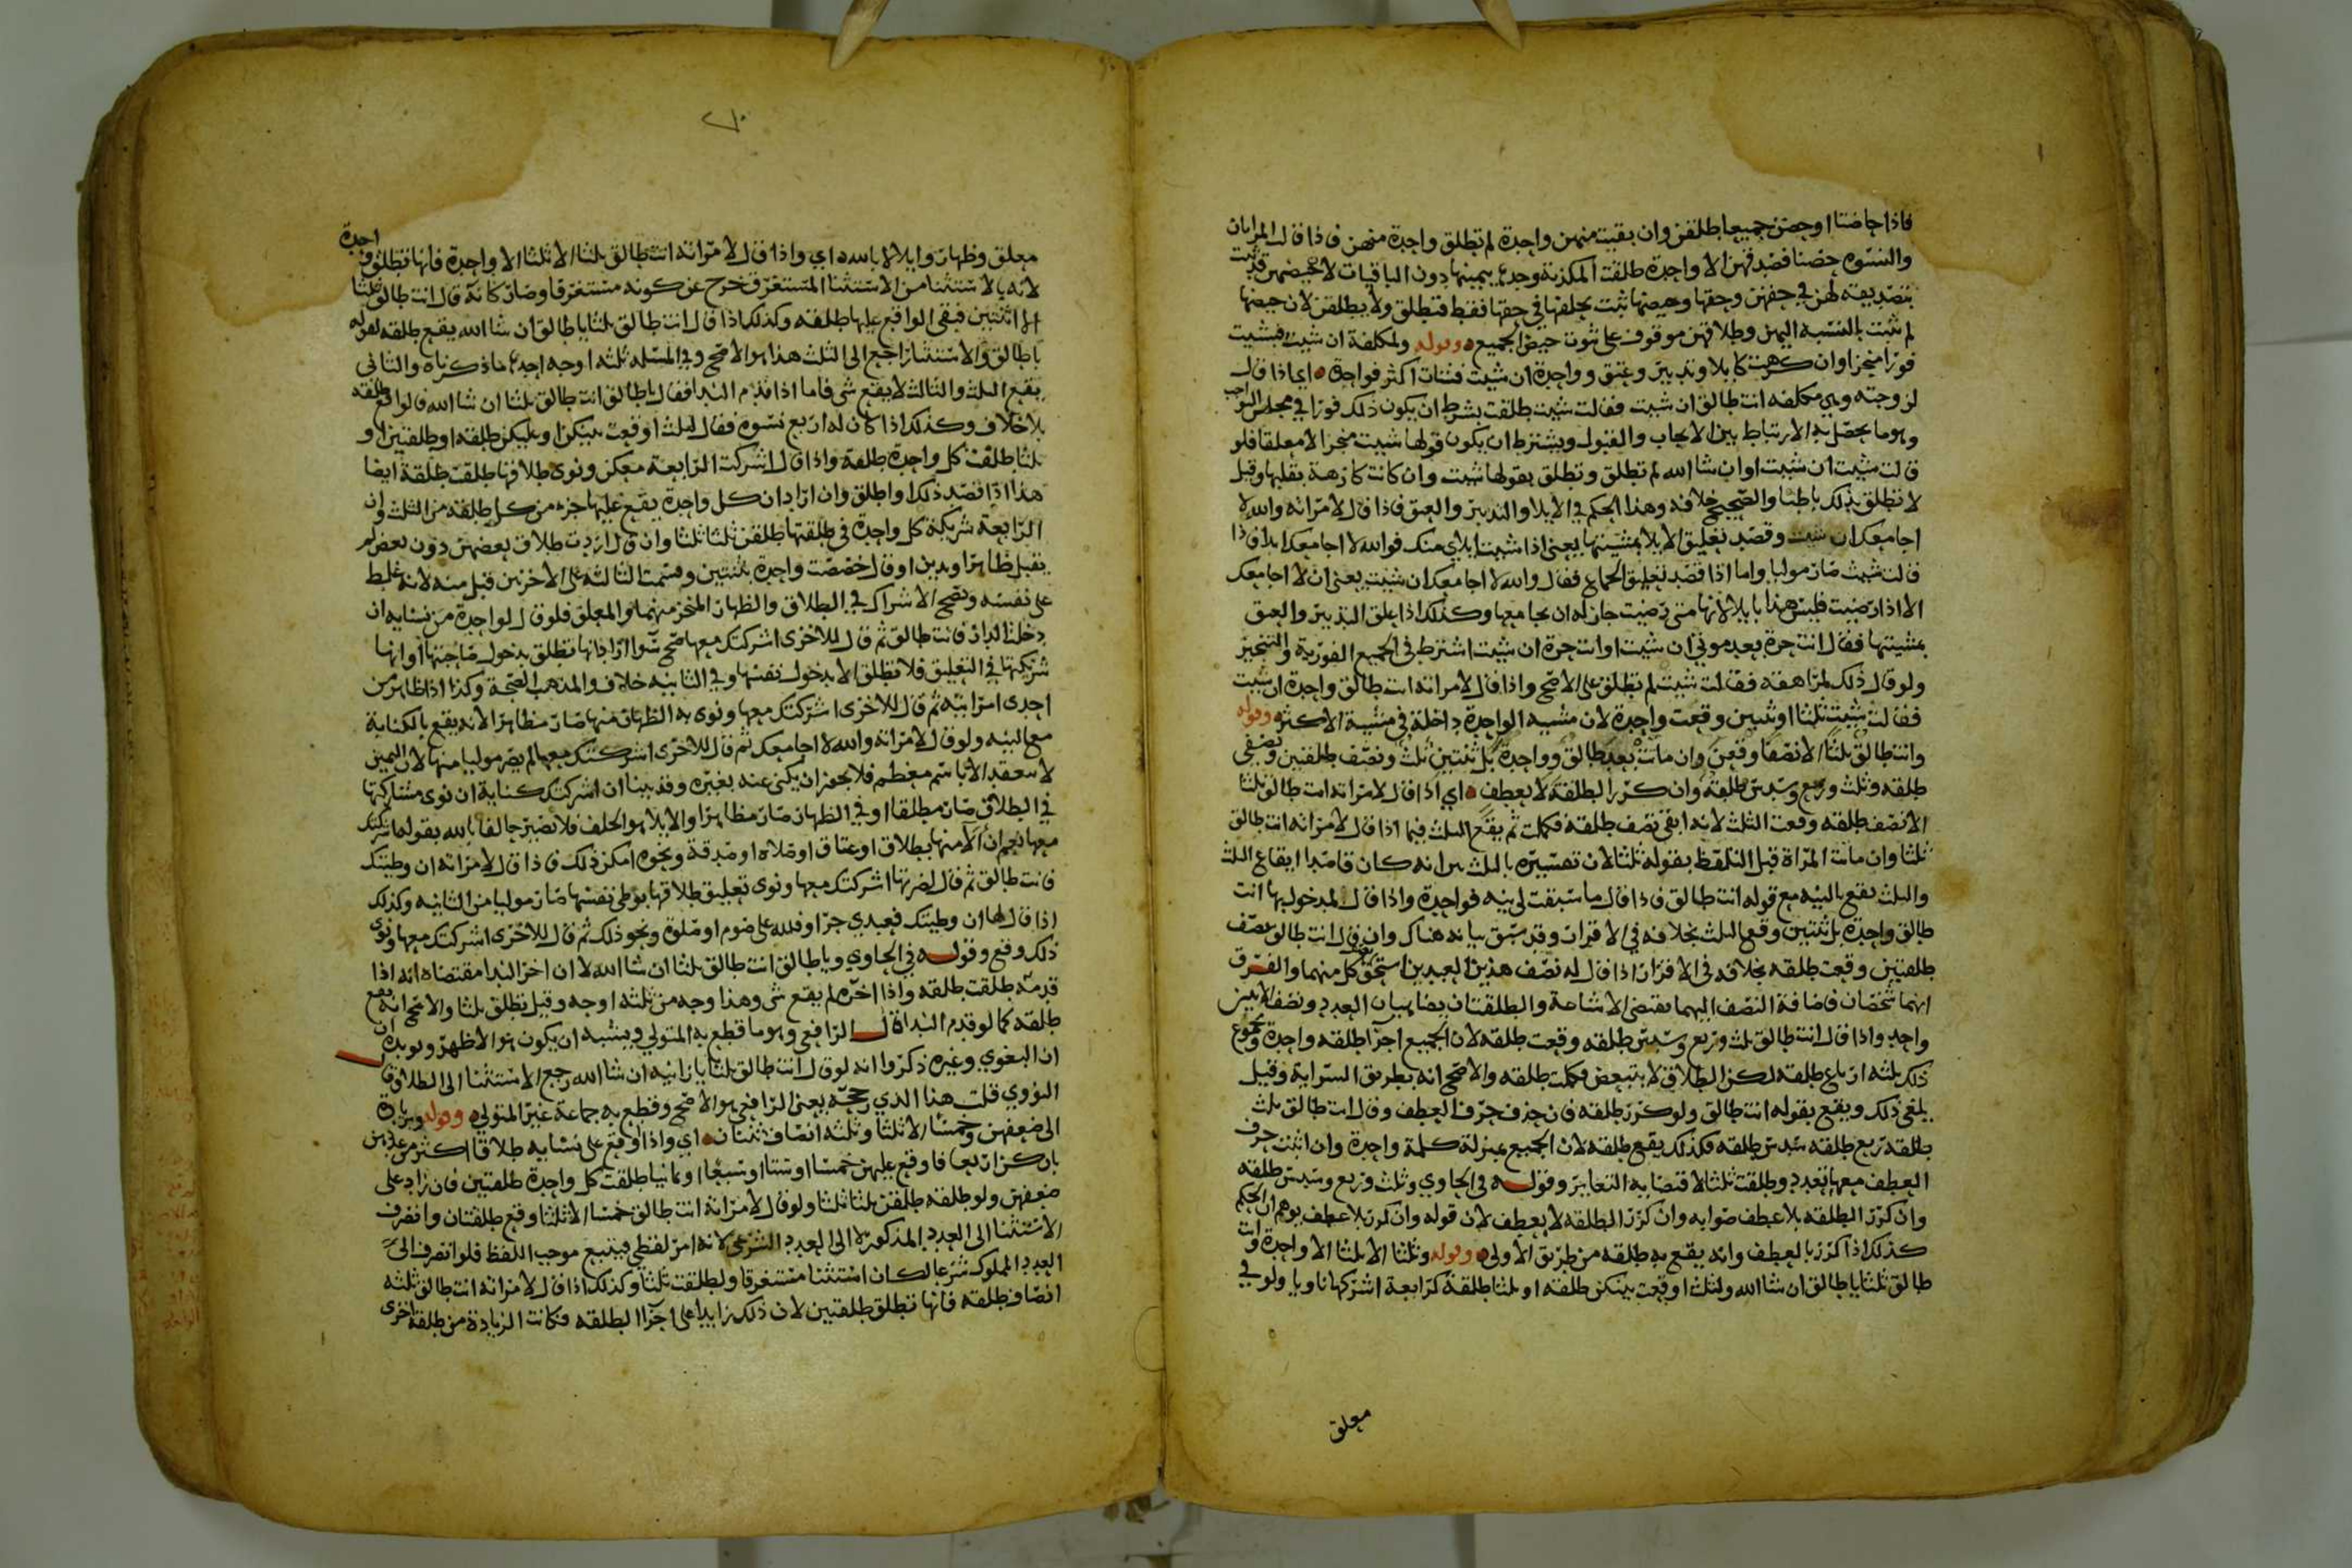 فاذا حاضتا او حضن جميعا طلقن وان بقيت منهن واحدة لم تطلق واحدة منهن فاذا قالت المراتان
والنسوه حضنا فصدقهن الا واحدة طلقت المكذبة وحدها بيمينها دون الباقيات لان حيضهن قد ثبت
بتصديقه لهن في حقهن وحقها وحيضها ثبت بحلفها في حقها فقط فتطلق ولا يطلقن لان حيضها
لم يثبت بالنسبه اليهن وطلاقهن موقوف على ثبوت حيض الجميع وقوله ولمكلفة ان شيت فشيت
فورا منجزا وان كرهت كايلا وتدبير وعتق وواحدة ان شيت فشات اكثر فواحدة اي اذا قال
لزوجته وهي مكلفه انت طالق ان شيت فقالت شيت طلقت بشرط ان يكون ذلك فورا في مجلس التواجب
وهو ما يحصل به الارتباط بين الايجاب والقبول ويشترط ان يكون قولها شيت منجزا لا معلقا فلو
قالت شيت ان شيت او ان شا الله لم تطلق وتطلق بقولها شيت وان كانت كارهة بقلبها وقيل
لا تطلق بذلك باطنا والصحيح خلافه وهذا الحكم في الايلا والتدبير والعتق فاذا قال لامراته والله لا
اجامعك ان شيت وقصد تعليق الايلا بمشيتها يعني اذا شيت ايلاي منك فوالله لا اجامعك ابدا فاذا
قالت شيت صار موليا واما اذا قصد تعليق الجماع فقال والله لا اجامعك ان شيت يعني ان لا اجامعك
الا اذا رضيت فليس هذا بايلا لانها متى رضيت جاز له ان يجامعها وكذلك اذا علق التدبير والعتق
بمشيتها فقال انت حرة بعد موتي ان شيت او انت حرة ان شيت اشترط في الجميع الفورية والتنجيز
ولو قال ذلك لمراهقه فقالت شيت لم تطلق على الاصح واذا قال لامراته انت طالق واحدة ان شيت
فقالت شيت ثلثا او ثنتين وقعت واحدة لان مشيه الواحدة داخلة في مشية الاكثر وقوله
وانت طالق ثلثا الا نصفا وقعن وان ماتت بعد طالق وواحدة بل ثنتين ثلث ونصف طلقتين ونصفي
طلقه وثلث وربع وسدس طلقة وان كرر الطلقة لا بعطف اي اذا قال لامراته انت طالق ثلثا
الا نصف طلقه وقعت الثلث لانه ابقى نصف طلقة فكملت ثم يقع الثلث فيما اذا قال لامراته انت طالق
ثلثا وان ماتت المراة قبل التلفظ بقوله ثلثا لان تفسيره بالثلث انه كان قاصدا ايقاع الثلث
والثلث يقع بالنيه مع قوله انت طالق فاذا قال ما سبقت لي نيه فواحدة واذا قال لمدخول بها انت
طالق واحدة بل ثنتين وقع الثلث بخلافه في الاقرار وقد سبق بيانه هناك وان قال انت طالق نصف
طلقتين وقعت طلقه بخلافه في الاقرار اذا قال له نصف هذين العبدين استحق نصف كل منهما والفرق
انهما شخصان فاضافة النصف اليهما يقتضي الاشاعة والطلقتان يضاهيان العدد ونصف الاثنين
واحد واذا قال انت طالق ثلث وربع وسدس طلقه وقعت طلقه لان الجميع اجزا طلقه واحدة ومجموع
ذلك ثلثه ارباع طلقه لكن الطلاق لا يتبعض فكملت طلقه والاصح انه بطريق السراية وقيل
يلغى ذلك ويقع بقوله انت طالق ولو كرر طلقه فان حذف حرف العطف وقال انت طالق ثلث
طلقة ربع طلقه سدس طلقه فكذلك يقع طلقه لان الجميع بمنزلة كلمة واحدة وان اثبت حرف
العطف معها تعدد وطلقت ثلثا لاقتضايه التغاير وقوله في الحاوي وثلث وربع وسدس طلقه
وان كرر الطلقه بلا عطف صوابه وان كرر الطلقه لا بعطف لان قوله وان كرر بلا عطف يوهم ان الحكم
كذلك اذا كرر بالعطف وانه يقع به طلقه من طريق الاولى وقوله وثلثا الا ثلثا الا واحدة وانت
طالق ثلثا يا طالق ان شا الله ولثلث اوقعت بينكن طلقه او ثلثا طلقة كرابعة اشركها ناويا ولو في
معلق
معلق وظهار وايلا لا بالله اي واذا قال لامراته انت طالق ثلثا الا ثلثا الا واحدة فانها تطلق واحدة
لانه بالاستثنا من الاستثنا المستغرق خرج عن كونه مستغرقا وصار كانه قال انت طالق ثلثا
الا اثنتين فبقى الواقع عليها طلقه وكذلك اذا قال انت طالق ثلثا يا طالق ان شا الله يقع طلقه لقوله
يا طالق والاستثنا راجع الى الثلث هذا هو الاصح وفي المسله ثلثه اوجه احدها ما ذكرناه والثاني
يقع الثلث والثالث لا يقع شي فاما اذا قدم الندا فقال يا طالق انت طالق ثلثا ان شا الله فالواقع طلقه
بلا خلاف وكذلك اذا كان له اربع نسوه فقال لثلث اوقعت بينكن او عليكن طلقه او طلقتين او
ثلثا طلقت كل واحدة طلقة واذا قال اشركت الرابعة معكن ونوى طلاقها طلقت طلقة ايضا
هذا اذا قصد ذلك او اطلق وان اراد ان كل واحدة يقع عليها جزء من كل طلقه من الثلث وان
الرابعة شريكة كل واحدة في طلقتها طلقن ثلثا ثلثا وان قال اردت طلاق بعضهن دون بعض لم
يقبل ظاهرا ويدين او قال خصصت واحدة بثنتين وقسمت الثالثه على الاخرين قبل منه لانه غلط
على نفسه ويصح الاشراك في الطلاق والظهار المنجز منهما والمعلق فلو قال لواحدة من نسايه ان
دخلت الدار فانت طالق ثم قال للاخرى اشركتك معها صح سوا اراد انها تطلق بدخول صاحبتها او انها
شريكتها في التعليق فلا تطلق الا بدخول نفسها وفي الثانيه خلاف والمذهب الصحة وكذا اذا ظاهر من
احدى امراتيه ثم قال للاخرى اشركتك معها ونوى به الظهار منها صار مظاهرا لانه يقع بالكناية
مع النيه ولو قال لامراته والله لا اجامعك ثم قال للاخرى اشركتك معها لم يصر موليا منها لان اليمين
لا ينعقد الا باسم معظم فلا يجوز ان يكنى عنه بغيره وقد بينا ان اشركتك كناية ان نوى مشاركتها
في الطلاق صار مطلقا او في الظهار صار مظاهرا والايلا هو الحلف فلا يصير حالفا بالله بقوله اشركتك
معها نعم ان آلا منها بطلاق او عتاق او صلاه او صدقة ونحوه امكن ذلك فاذا قال لامراته ان وطيتك
فانت طالق ثم قال لضرتها اشركتك معها ونوى تعليق طلاقها بوطي نفسها صار موليا من الثانيه وكذلك
اذا قال لها ان وطيتك فعبدي حر او فلله علي صوم او صلوة ونحو ذلك ثم قال للاخرى اشركتك معها ونوى
ذلك وقع وقوله في الحاوي ويا طالق انت طالق ثلثا ان شا الله لا ان اخر الندا مقتضاه انه اذا
قدمه طلقت طلقه واذا اخره لم يقع شي وهذا وجه من ثلثه اوجه وقيل تطلق ثلثا والاصح انه يقع
طلقه كما لو قدم الندا قال الرافعي وهو ما قطع به المتولي ويشبه ان يكون هو الاظهر ويويده ان
ان البغوي وغيره ذكروا انه لو قال انت طالق ثلثا يا زانيه ان شا الله رجع الاستثنا الى الطلاق قال
النووي قلت هذا الذي رجحه يعني الرافعي هو الاصح وقطع به جماعة غير المتولي وقوله وبزيادة
الى ضعفهن وخمسا الا ثلثا وثلثه انصاف ثنتان اي واذا اوقع على نسايه طلاقا اكثر من عددهن
بان كن اربعا فاوقع عليهن خمسا او ستا او سبعا او ثمانيا طلقت كل واحدة طلقتين فان زاد على
ضعفهن ولو طلقه طلقن ثلثا ثلثا ولو قال لامراته انت طالق خمسا الا ثلثا وقع طلقتان وانصرف
الاستثنا الى العدد المذكور لا الى العدد الشرعي لانه امر لفظي فيتبع موجب اللفظ فلو انصرف الى
العدد المملوك شرعا لكان استثنا مستغرقا ولطلقت ثلثا وكذلك اذا قال لامراته انت طالق ثلثه
انصاف طلقه فانها تطلق طلقتين لان ذلك زايد على اجزا الطلقه فكانت الزيادة من طلقة اخرى